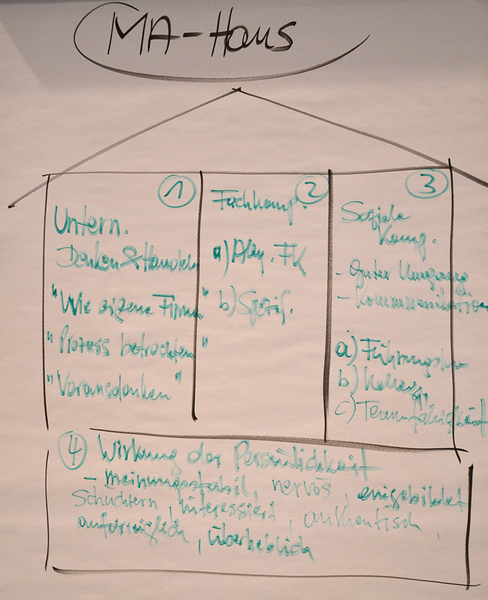 MA-Haus
1
Untern.
Denken & Handeln
"Wie eigene Firma"
"Prozess betrachten"
"Vorausdenken"
2
Fachkomp.
a) Allg. FK
b) Spezif.
3
Soziale
Komp.
- Guter Umgang
- Kommunikation
a)
b)
c) Teamfähigkeit
4 Wirkung der Persönlichkeit
- meinungsstabil, nervös, eingebildet
schüchtern, interessiert, authentisch,
, überheblich